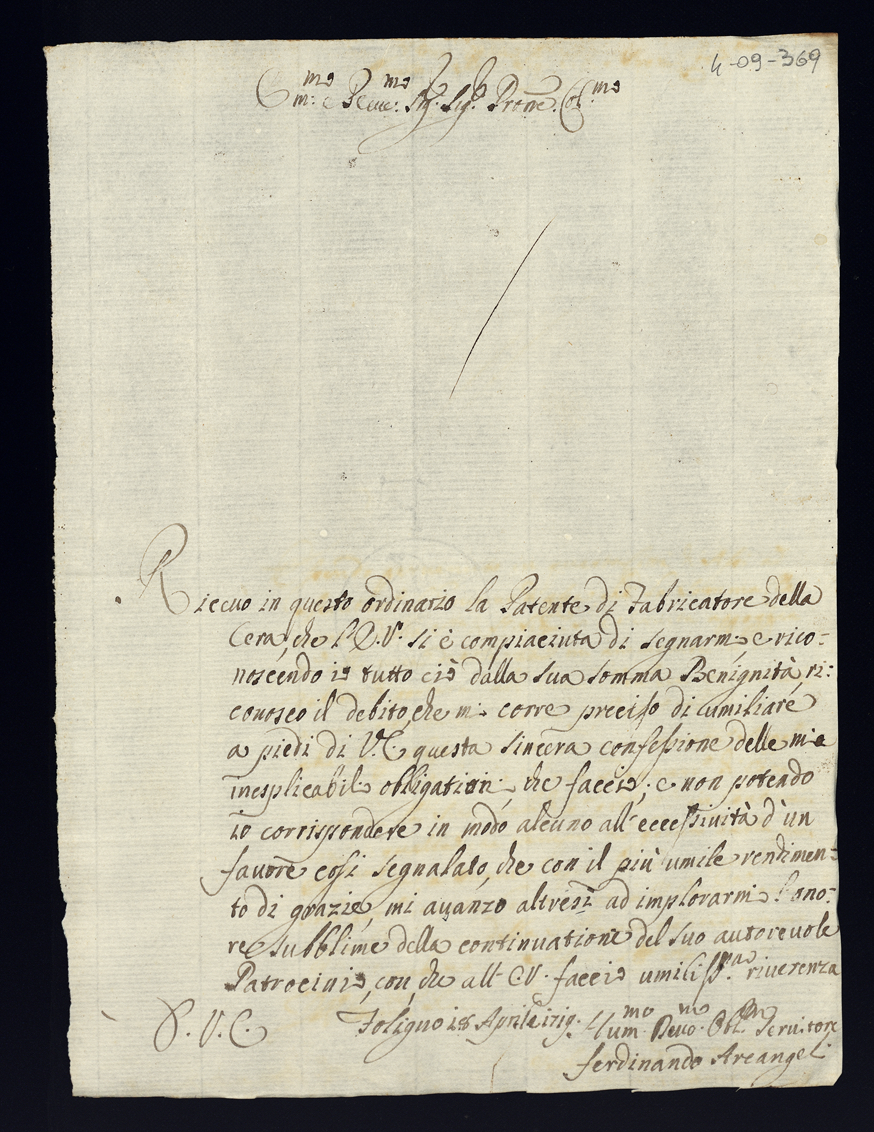 4-09-369
Em:mo e Reve:mo Sig.r Sig.r Prone. Col.mo
Riceuo in questo ordinario la Patente di Fabricatore della
Cera, che l'E.V. si è compiaciuta di segnarmi, e rico=
noscendo io tutto ciò dalla sua somma Benignità, ri:
conosco il debito, che mi corre preciso di umiliare
a piedi di V.E. questa sincera confessione delle mie
inesplicabili obligationi, che faccio; e non potendo
io corrispondere in modo alcuno all'eccessiuità d'un
fauore così segnalato, che con il più umile rendimen=
to di grazie, mi auanzo altresì ad implorarmi l'ono=
re subblime della continuatione del suo autoreuole
Patrocinio, con che all'E.V. faccio umiliss.ma riuerenza
S. V. E. Foligno 28 Aprile 1719. Um.mo Deuo.mo Obl.mo Seruitore
Ferdinando Arcangeli